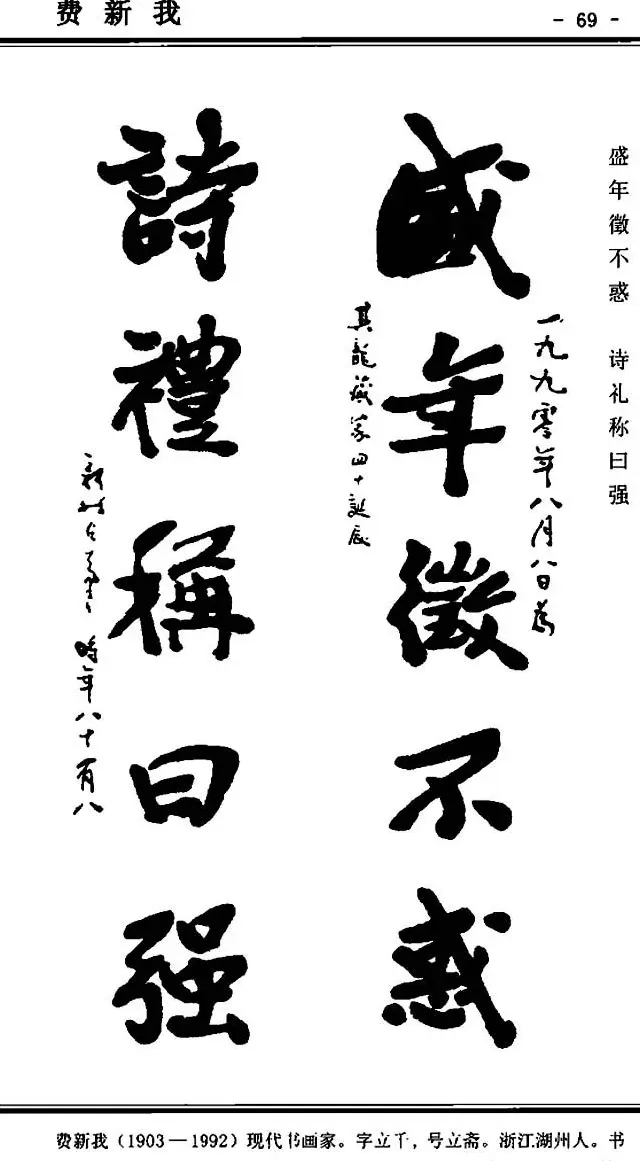 费新我
- 69 -
盛年徵不惑 诗礼称曰强
一九九零年八月八日为
盛年徵不惑
其龍藏家四十誕辰
詩禮稱曰强
新我左手書 時年八十有八
费新我（1903—1992）现代书画家。字立千，号立斋。浙江湖州人。书